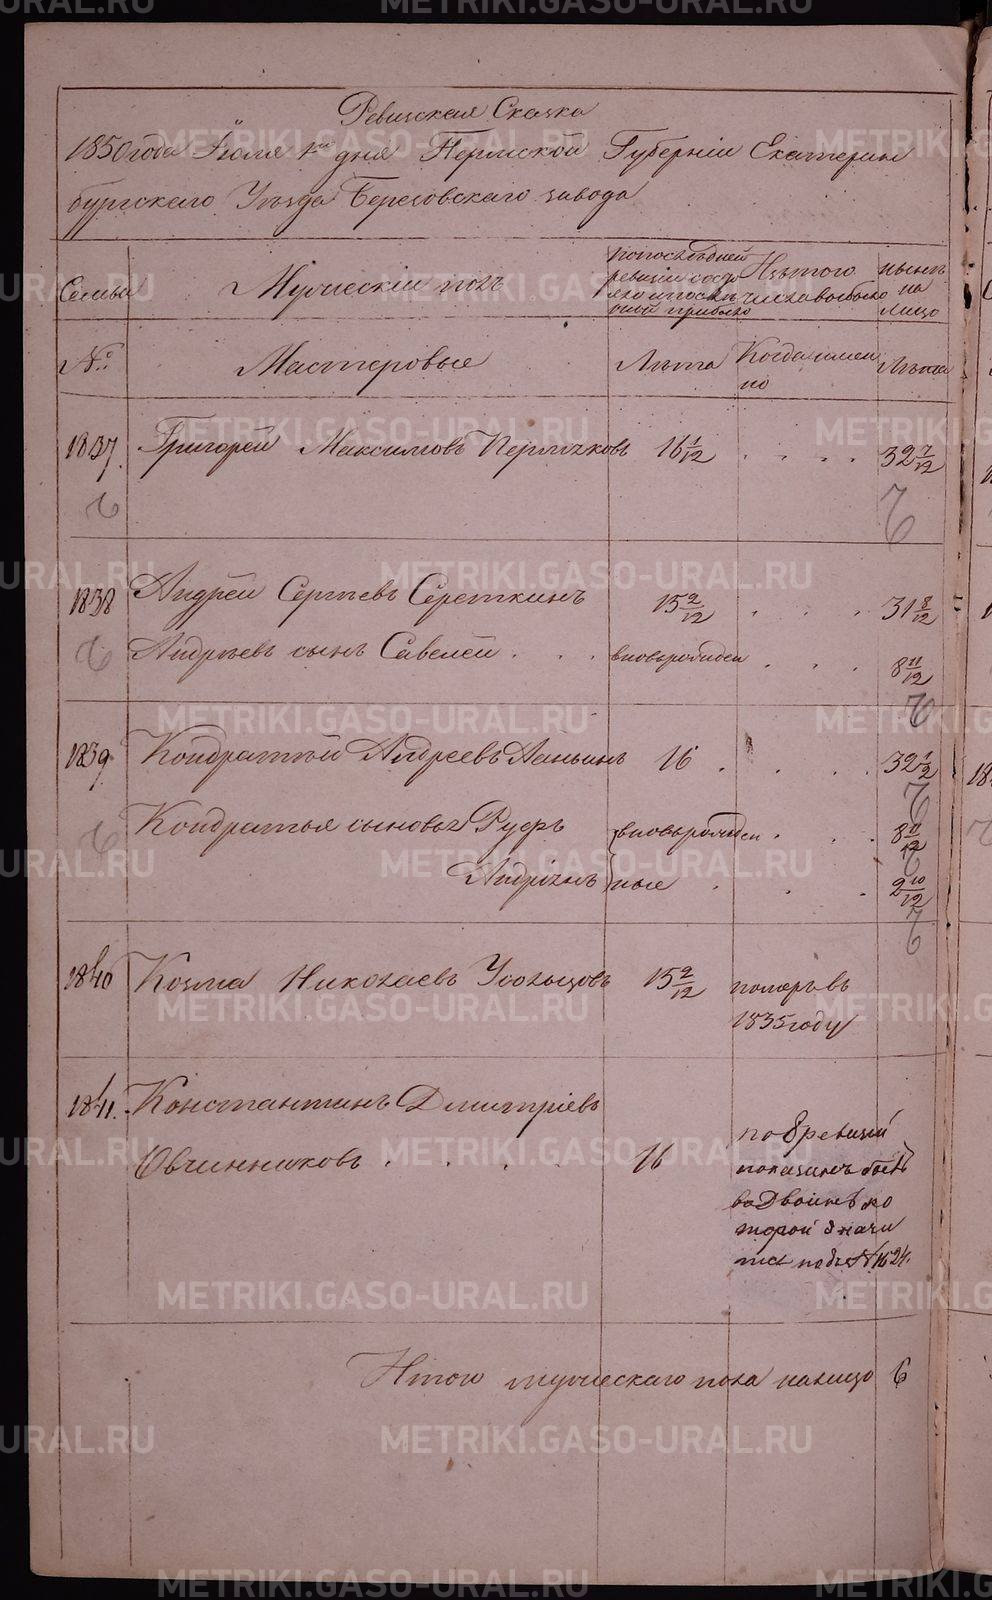 Ревизская Сказка
1850 года Июля 1го дня Пермской Губернiи Екатерин
бургскаго Уѣзда Березовскаго завода
Семьи
Мужескiй полъ
попослѣдней ревизiи состо яло и послѣ оной прибыло
Изъ того числа выбыло
нынѣ на лицо
№.
Мастеровые
Лѣта
Когда имен но
Лѣта
1837. Григорей Максимовъ Пермяковъ 16 1/12 . . . . 32 7/12
1838 Андрей Сергѣевъ Сереткинъ 15 2/12 . . . 31 8/12
Андрѣевъ сынъ Савелей . . . вновьрожден . . . 8 11/12
1839. Кондратей Андреевъ Ананьинъ 16 . . . . 32 1/2
Кондратья сыновья Руфъ вновьрожден . . . 8 11/12
Андрiянъ ные . . . 2 10/12
1840 Козма Николаевъ Усольцовъ 15 2/12 померъ въ
1835 году
1841. Константинъ Дмитрiевъ
Овчинниковъ . . . . 16 по 8 ревизiи
показанъ быть
въ Двойнѣ ко
торой значи
тся подъ № 1624.
Итого мужескаго пола налицо 6
METRIKI.GASO-URAL.RU